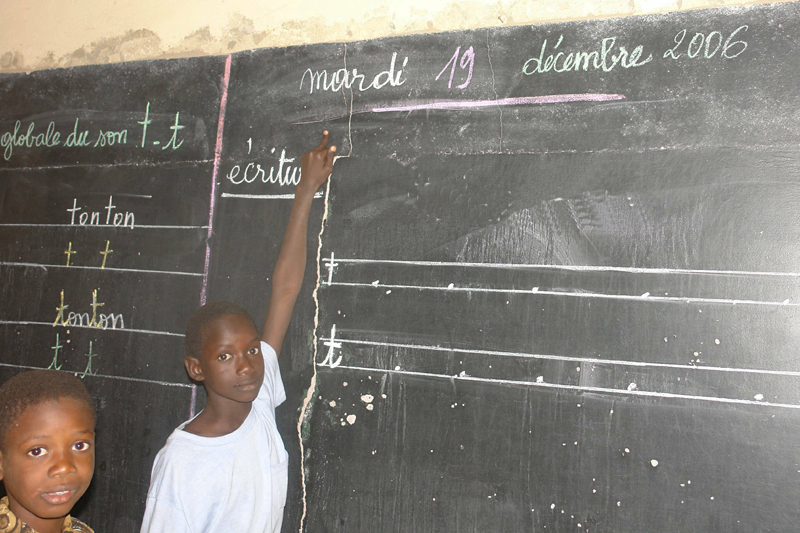 mardi 19 décembre 2006
globale du son t - t
tonton
t t
tonton
t t
écritu
t
t